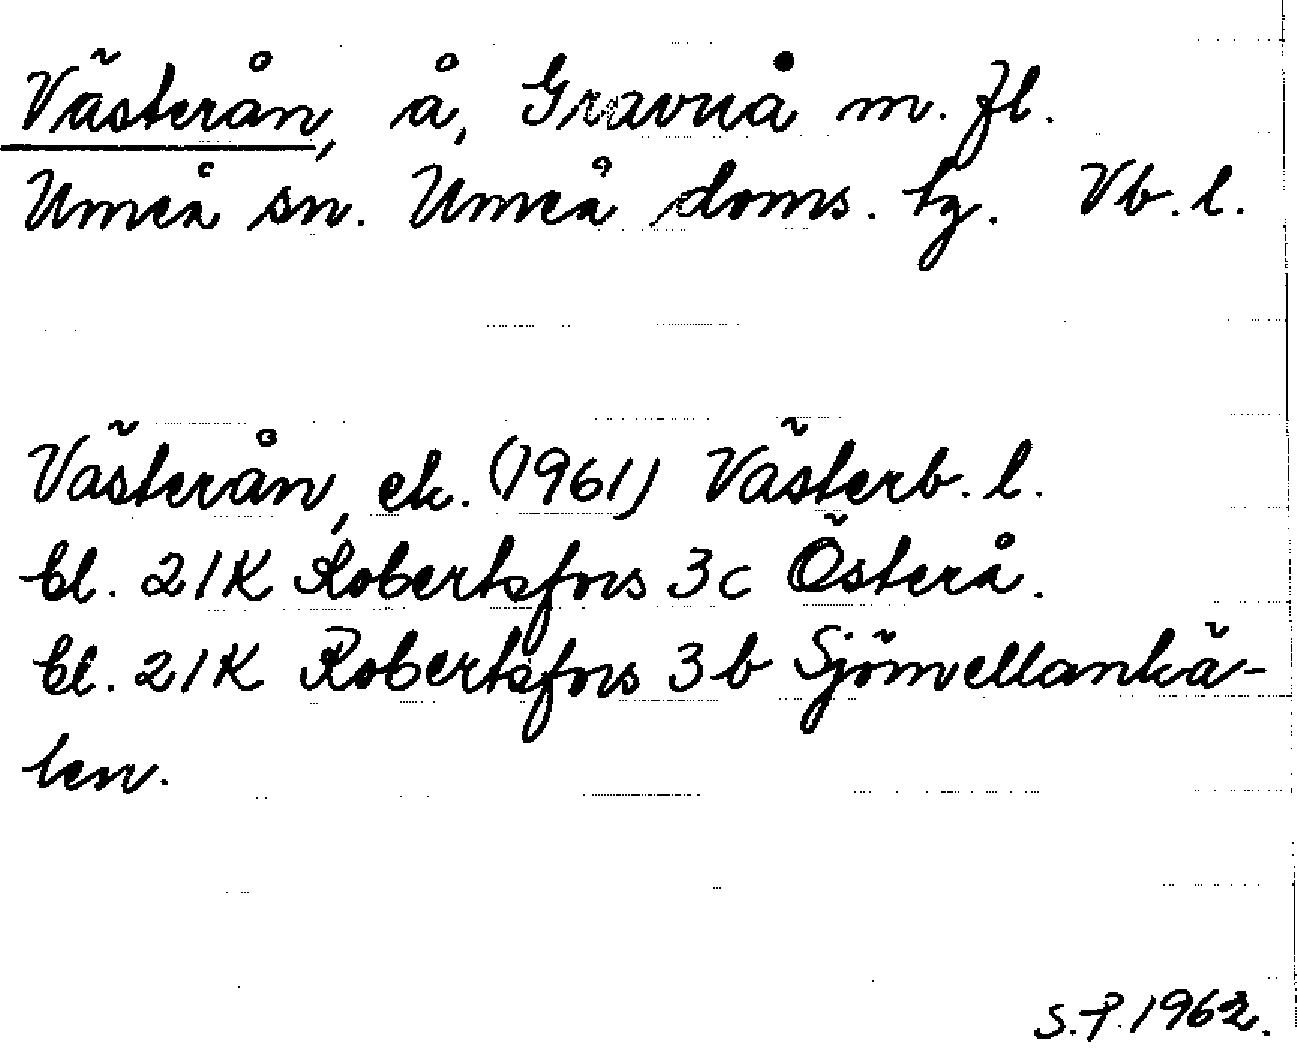 Västerån, å, Gravå m. fl.
Umeå sn. Umeå doms. tg. Vb. l.
Västerån, ek. (1961) Västerb. l.
bl. 21K Robertsfors 3c Österå.
bl. 21K Robertsfors 3b Sjömellankä-
len.
S.P. 1962.